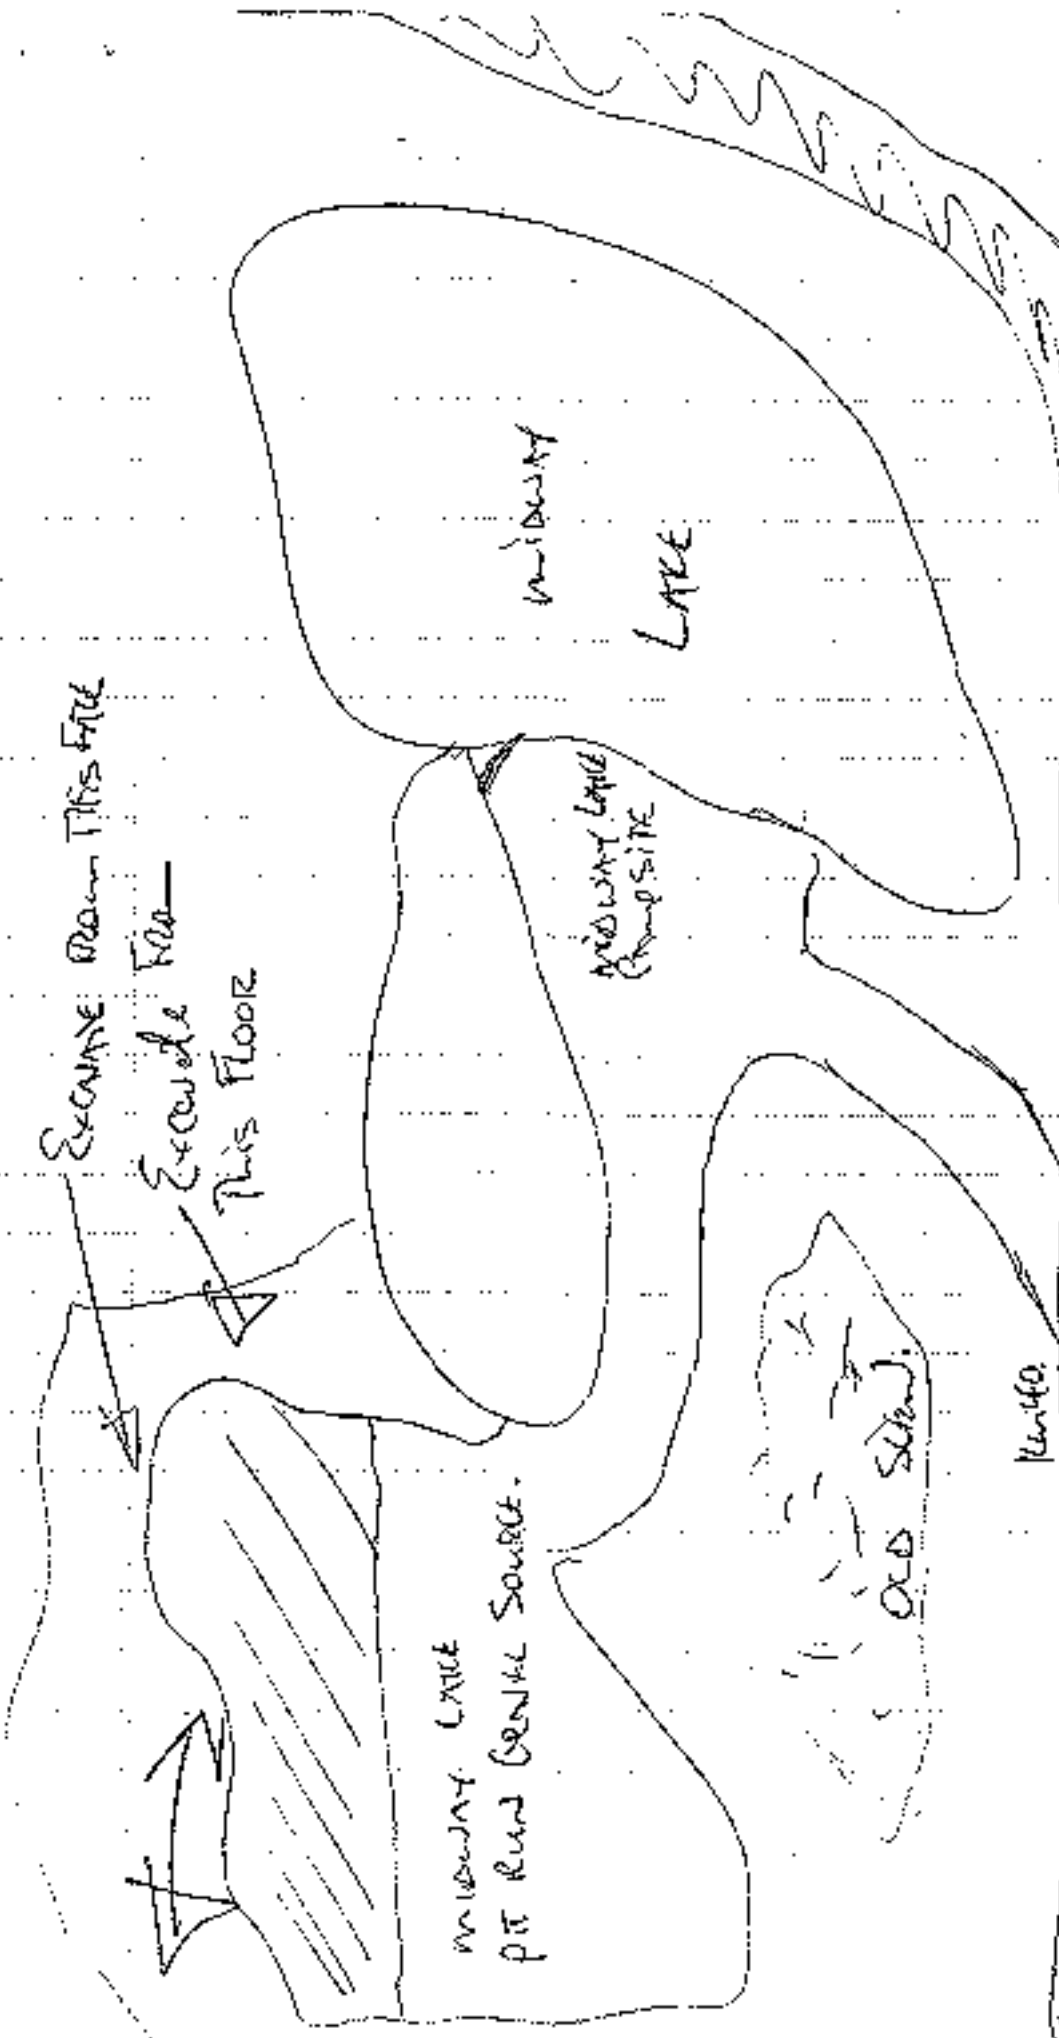 Excavate From This Face
Excavate From
This Floor
MIDWAY
LAKE
MIDWAY LAKE
CampSITE
MIDWAY LAKE
PIT RUN Gravel Source.
OLD